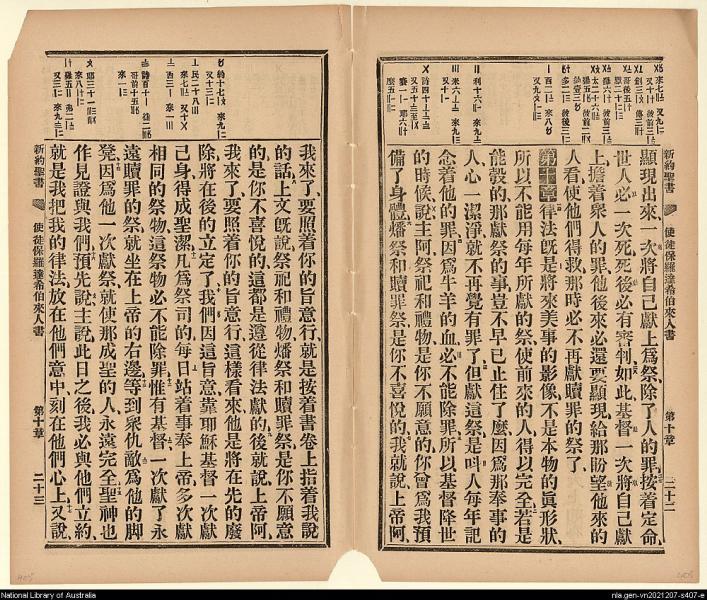 新約聖書
使徒保羅達希伯來人書
第十章
二十二
顯現出來一次將自己獻上爲祭除了人的罪、按着定命
世人必一次死、死後必有審判、如此基督一次將自己獻
上、擔着衆人的罪、他後來必還要顯現、給那盼望他來的
人看、使他們得救、那時必不再獻贖罪的祭了、
第十章 律法旣是將來美事的影像、不是本物的眞形狀
所以不能用每年所獻的祭、使前來的人得以完全、若是
能彀的、那獻祭的事豈不早已止住了麽、因爲那奉事的
人、心一潔淨、就不再覺有罪了、但獻這祭、是叫人每年記
念着他的罪、因爲牛羊的血、必不能除罪、所以基督降世
的時候、說主阿、祭祀和禮物、是你不願意的、你曾爲我預
備了身體、燔祭和贖罪祭、是你不喜悅的、我就說、上帝阿、
我來了、要照着你的旨意行、就是按着書卷上指着我說
的話、上文旣說祭祀和禮物燔祭和贖罪祭、是你不願意
的、是你不喜悅的、這都是遵從律法獻的、後就說、上帝阿
我來了、要照着你的旨意行、這樣看來、他是將在先的廢
除、將在後的立定了、我們因這旨意、靠耶穌基督一次獻
己身、得成聖潔、凡爲祭司的、每日站着事奉上帝、多次獻
相同的祭物、這祭物必不能除罪、惟有基督一次獻了永
遠贖罪的祭、就坐在上帝的右邊、等到衆仇敵爲他的脚
凳、因爲他一次獻祭、就使那成聖的人永遠完全、聖神也
作見證與我們、預先說、主說、此日之後、我必與他們立約、
就是我把我的律法、放在他們意中、刻在他們心上、又說、
新約聖書
使徒保羅達希伯來人書
第十章
二十三
National Library of Australia
nla.gen-vn2021207-s407-e